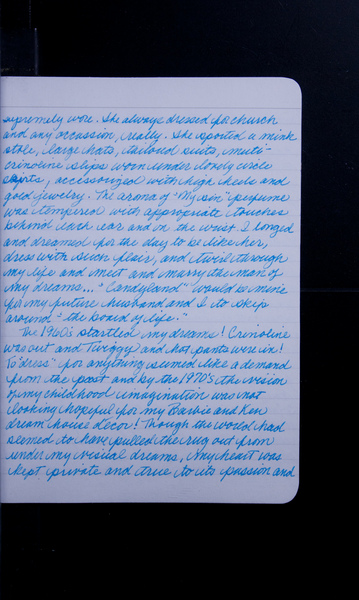 supremely wore. She always dressed for church
and any occassion, really. She sported a mink
stole, large hats, tailored suits, multi-
crinoline slips worn under lovely circle
skirts, accessorized with high heels and
gold jewelry. The aroma of "My sin" perfume
was tempered with appropriate touches
behind each ear and on the wrist. I longed
and dreamed for the day to be like her,
dress with such flair, and twirl through
my life and meet and marry the man of
my dreams... "Candyland" would be mine
for my future husband and I to skip
around "the board of life."
The 1960's startled my dreams! Crinoline
was out and Twiggy and hot pants were in!
To "dress" for anything seemed like a demand
from the past and by the 1970's the vision
of my childhood imagination was not
looking hopeful for my Barbie and Ken
dream house decor! Though the world had
seemed to have pulled the rug out from
under my visual dreams, my heart was
kept private and true to its passion and